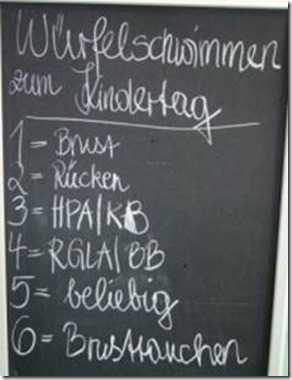 Würfelschwimmen
zum Kindertag
1 = Brust
2 = Rücken
3 = HPA/KB
4 = RGLA/BB
5 = beliebig
6 = Brusttauchen